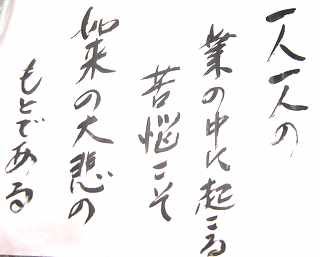 一人一人の
業の中に起こる
苦悩こそ
如来の大悲の
もとである